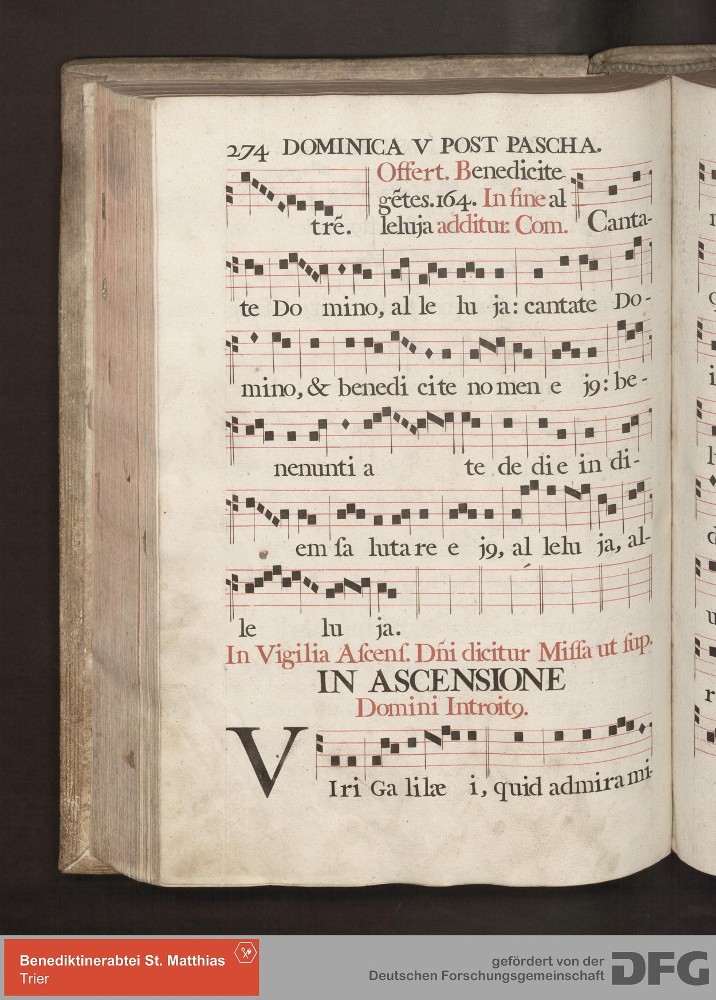 274 DOMINICA V POST PASCHA.
Offert. Benedicite
gẽtes. 164. In fine al
trẽ. leluja additur: Com. Canta-
te Do mino, al le lu ja: cantate Do-
mino, & benedi cite nomen e jꝯ: be-
nenunti a te de die in di-
em ſa lutare e jꝯ, al lelu ja, al-
le lu ja.
In Vigilia Aſcenſ. Dñi dicitur Miſſa ut ſup.
IN ASCENSIONE
Domini Introitꝯ.
VIri Ga lilæ i, quid admira mi-
Benediktinerabtei St. Matthias
Trier
gefördert von der
Deutschen Forschungsgemeinschaft DFG